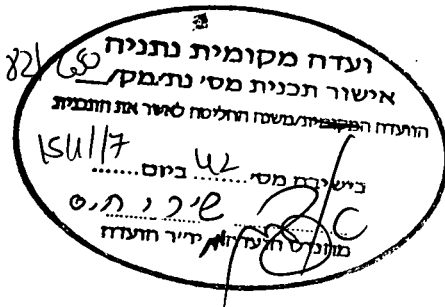 ועדה מקומית נתניה
אישור תכנית מס' נת/מק/
הוועדה המקומית/משנה החליטה לאשר את התכנית
בישיבת מס' 42 ביום
מהנדס הועדה יו"ר הועדה